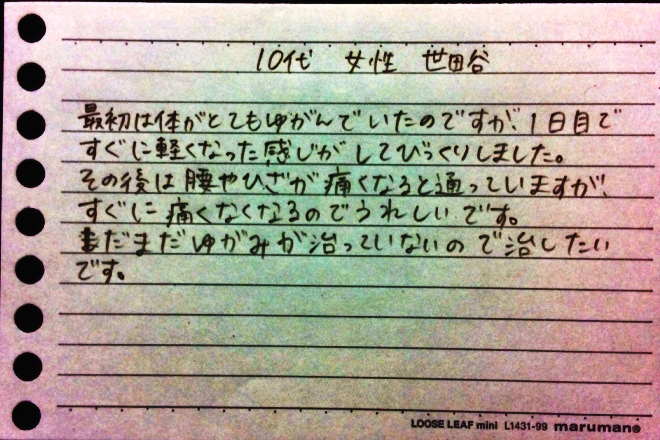 10代 女性 世田谷
最初は体がとてもゆがんでいたのですが、1日目で
すぐに軽くなった感じがしてびっくりしました。
その後は腰やひざが痛くなると通っていますが、
すぐに痛くなくなるのでうれしいです。
まだまだゆがみが治っていないので治したい
です。
LOOSE LEAF mini L1431-99 maruman®